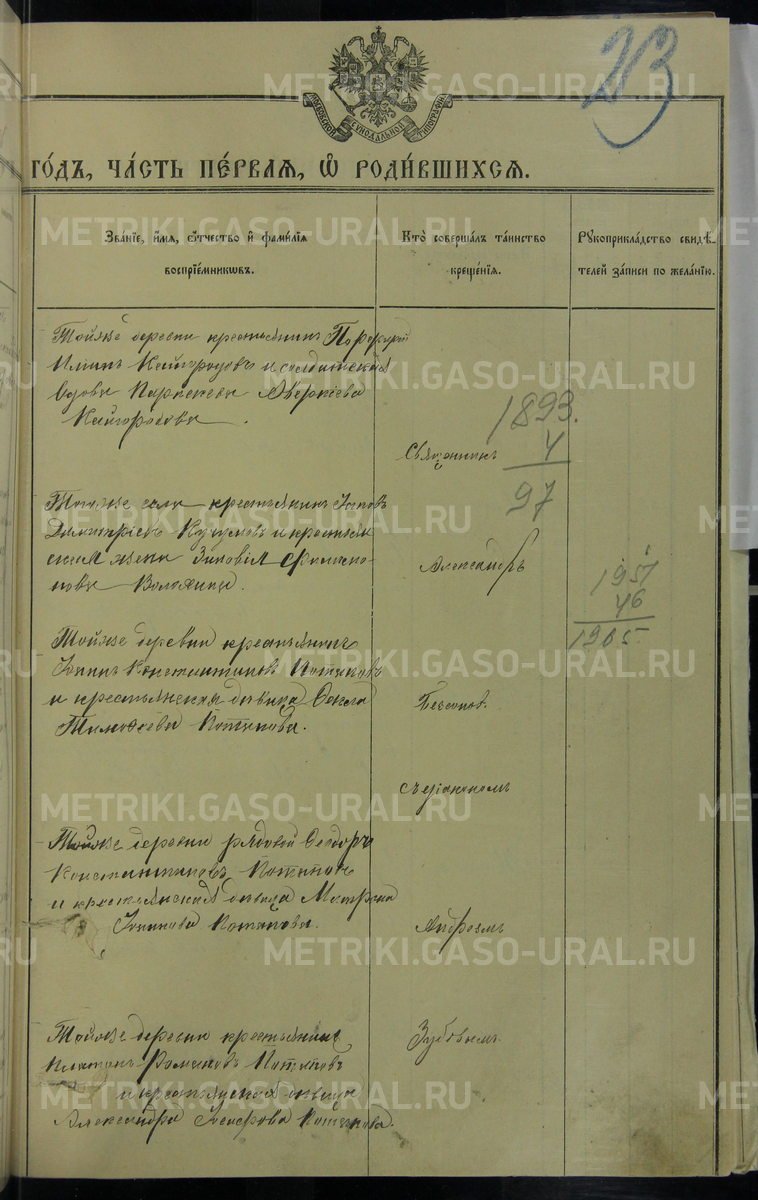 23
МОСКОВСКОЙ СѴНОДАЛЬНОЙ ТИПОГРАФІИ
ГОДЪ, ЧАСТЬ ПЕРВАЯ, Ѡ РОДИВШИХСЯ.
Званїе, имя, отчество и фамилїя
воспрїемниковъ.
Кто совершалъ таинство
крещенїя.
Рукоприкладство свидѣ-
телей записи по желанїю.
Тойже деревни крестьянинъ Порфирій
Кайгородовъ и солдатская
вдова Параскева Аверкіева
Кайгородова
Священникъ
1893.
4
97
Тогоже села крестьянинъ Іаковъ
Димитріевъ и крестьян
ская жена Зиновія
Александръ
1951
46
1905
Тойже деревни крестьянинъ
Константиновъ Потаповъ
и крестьянская дѣвица Ѳекла
Тимоѳеева Потапова.
съ діакономъ
Тойже деревни рядовой Ѳеодоръ
Константиновъ Потаповъ
и крестьянская дѣвица Матрона
Потапова.
Андреемъ
Тойже деревни крестьянинъ
Платонъ Романовъ Потаповъ
и крестьянская дѣвица
Александра Потапова.
Зубовымъ.
METRIKI.GASO-URAL.RU